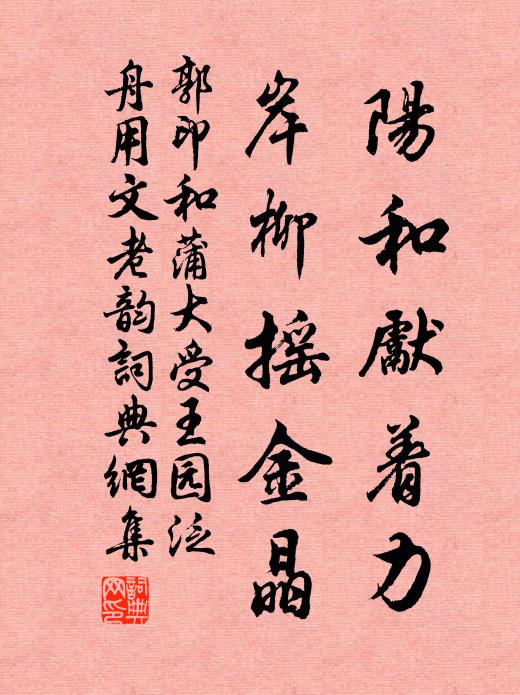 陽和獻着力
岸柳摇金晶
郭印和蒲大受王园泛
舟用文老韵詞典網集
詞典网印